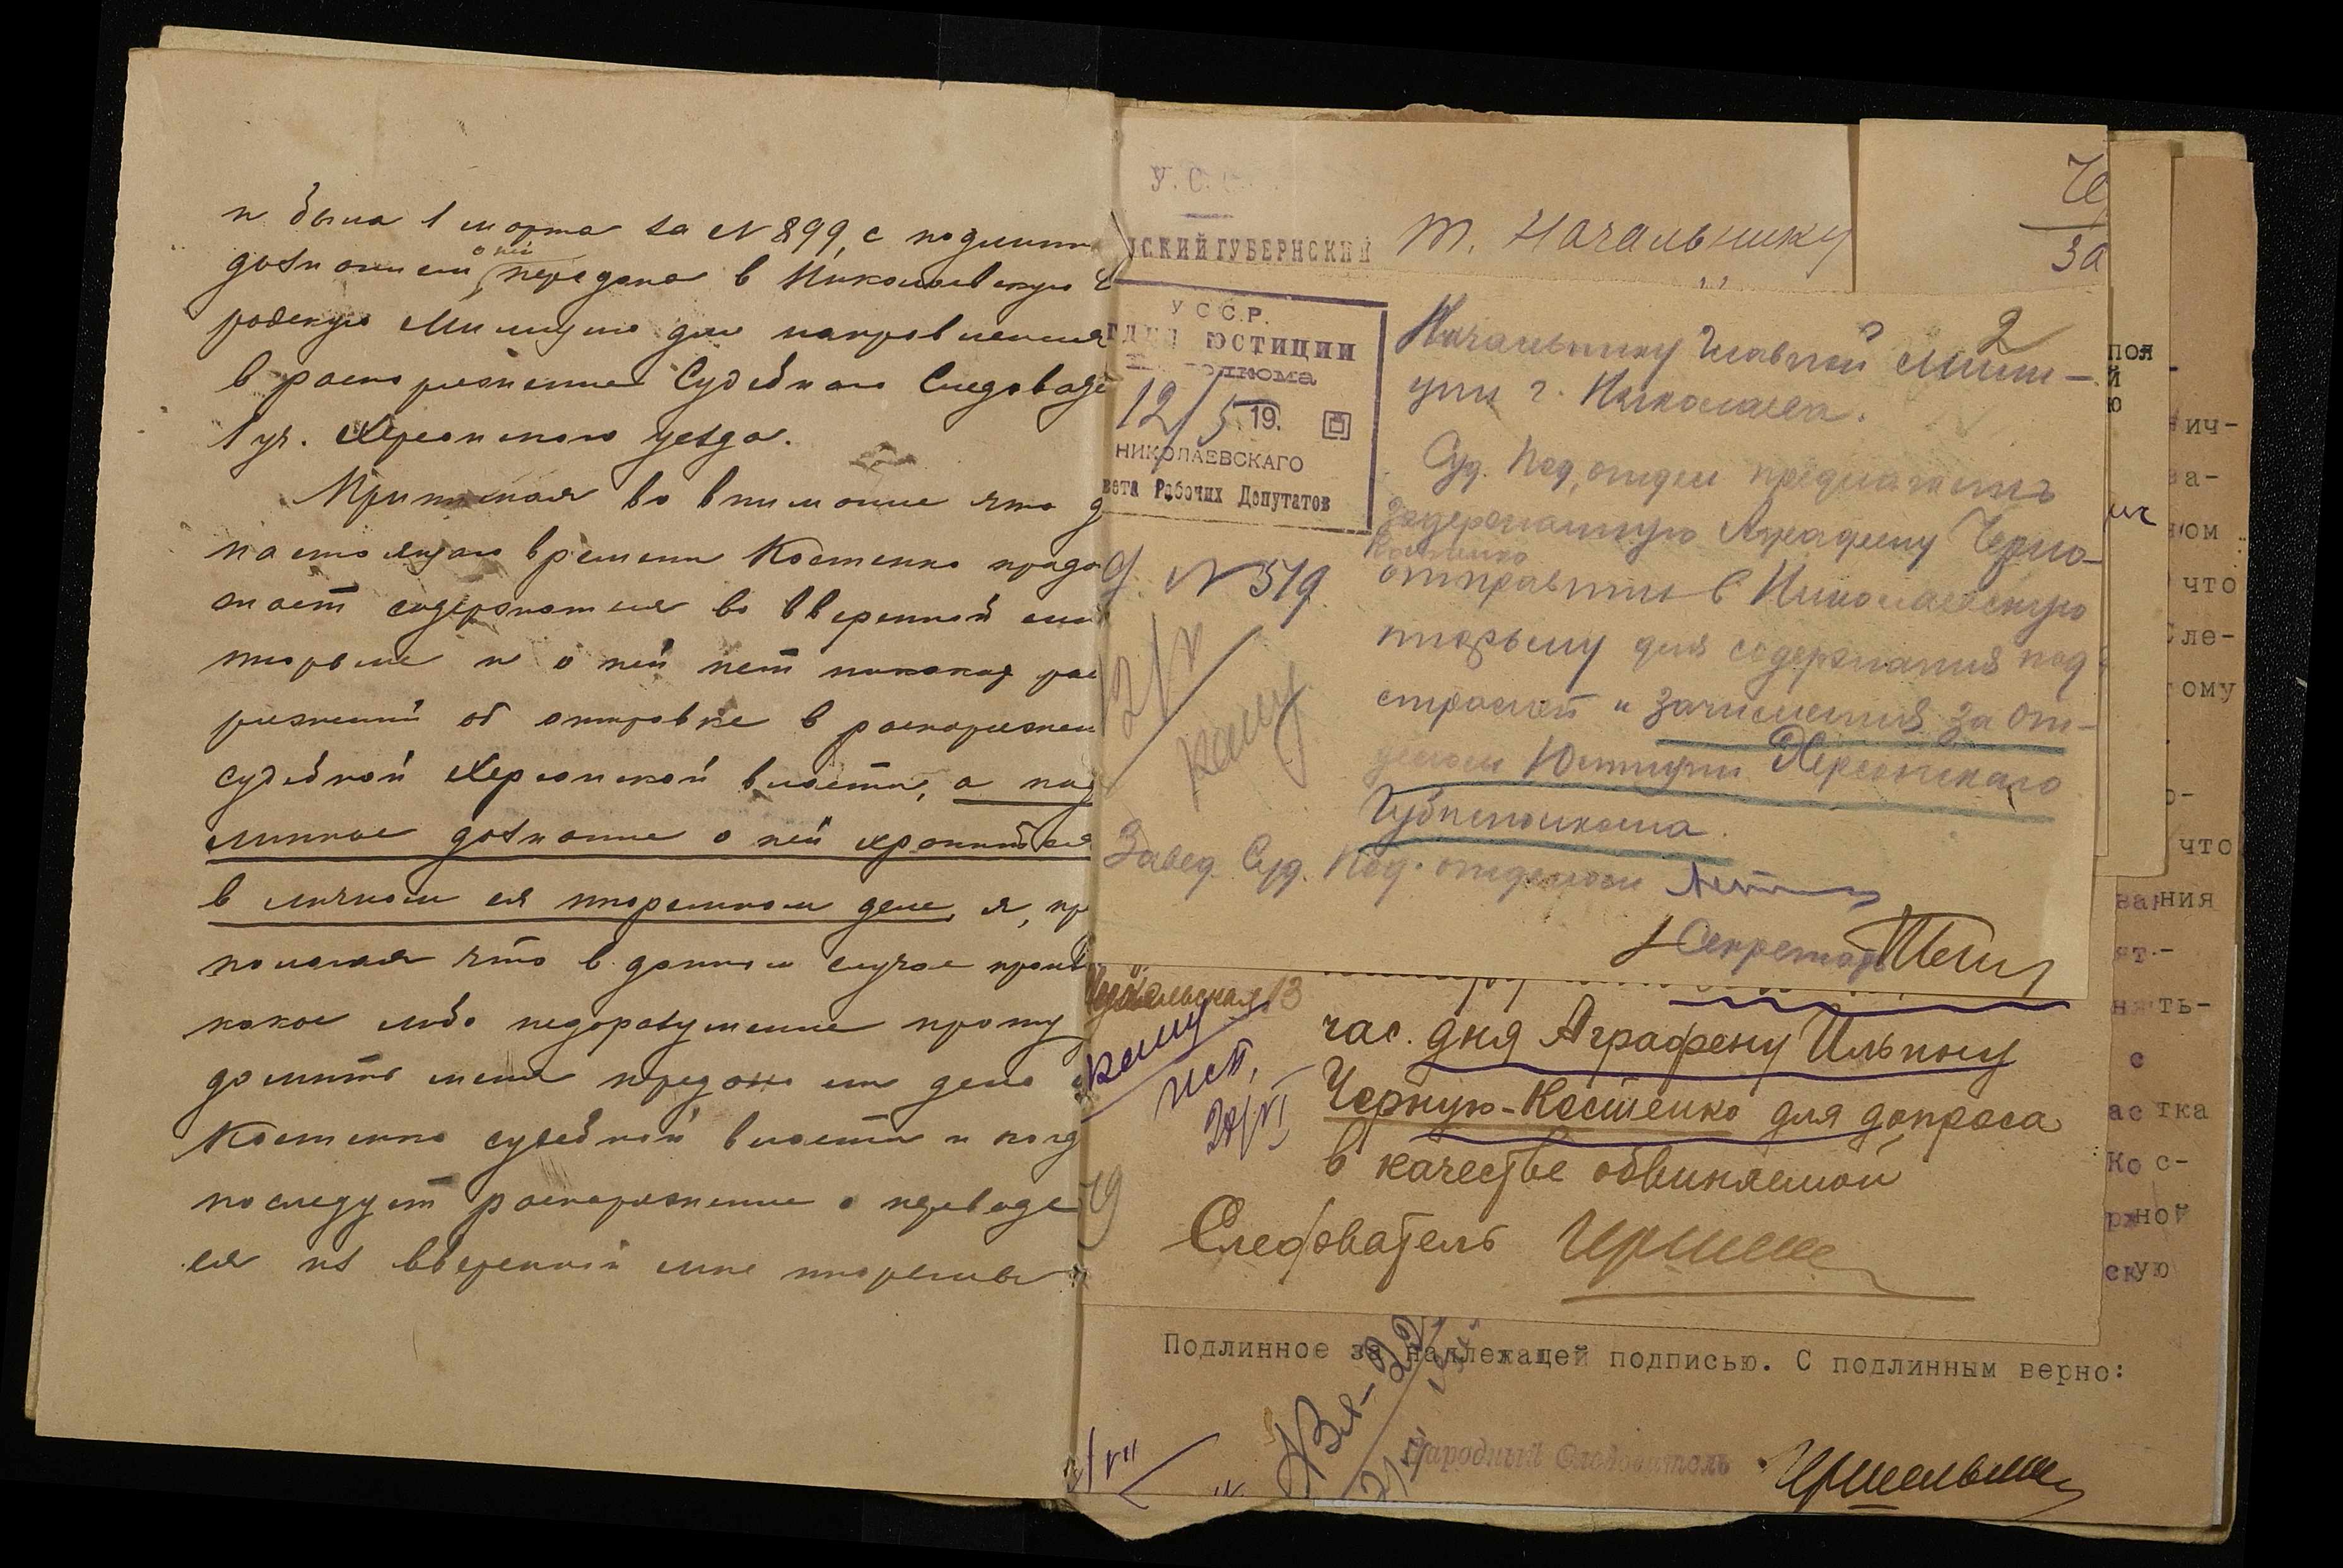 и была 1 марта за № 899, с подлинны
дознанием о ней передана в Николаевскую
родскую Милицию для направления
в распоряжение Судебного Следовате
1 уч. Херсонского уезда.
Принимая во внимание что д
настоящаго времени Костенко продол
жает содержаться во вверенной мне
тюрьме и о ней нет никаких рас
ряжений об отправке в распоряжен
судебной Херсонской власти, а под
линное дознание о ней хранится
в личном ея тюремном деле, я, пр
полагая что в данном случае произ
какое либо недоразумение прошу
домить меня передано ли дело
Костенко судебной власти и когд
последует распоряжение о переводе
ея из вверенной мне тюрьмы
У. С.
СКИЙ ГУБЕРНСКИЙ
т. Начальнику
За
УССР.
ЮСТИЦИИ
12/5 19.
НИКОЛАЕВСКАГО
вета Рабочих Депутатов
№ 519
12/V
2
Начальнику Главной Мили-
ции г. Николаева.
Суд. Под,отдел предлагает
задержанную Аграфену Черно-
Костенко
отправить в Николаевскую
тюрьму для содержания под
стражей и зачисления за От-
делом Юстиции Херсонскаго
Губисполкома.
Завед. Суд. Под-отделом
Секретарь
13
час. дня Аграфену Ильину
Черную-Костенко для допроса
в качестве обвиняемой
Следователь
исп.
Подлинное за надлежащей подписью. С подлинным верно:
Народный Следователь
пол
й
ю
ич-
за-
ом
что
Сле-
ому
что
вания
ят-
нять-
с
ас тка
Ко с-
рж ной
скую